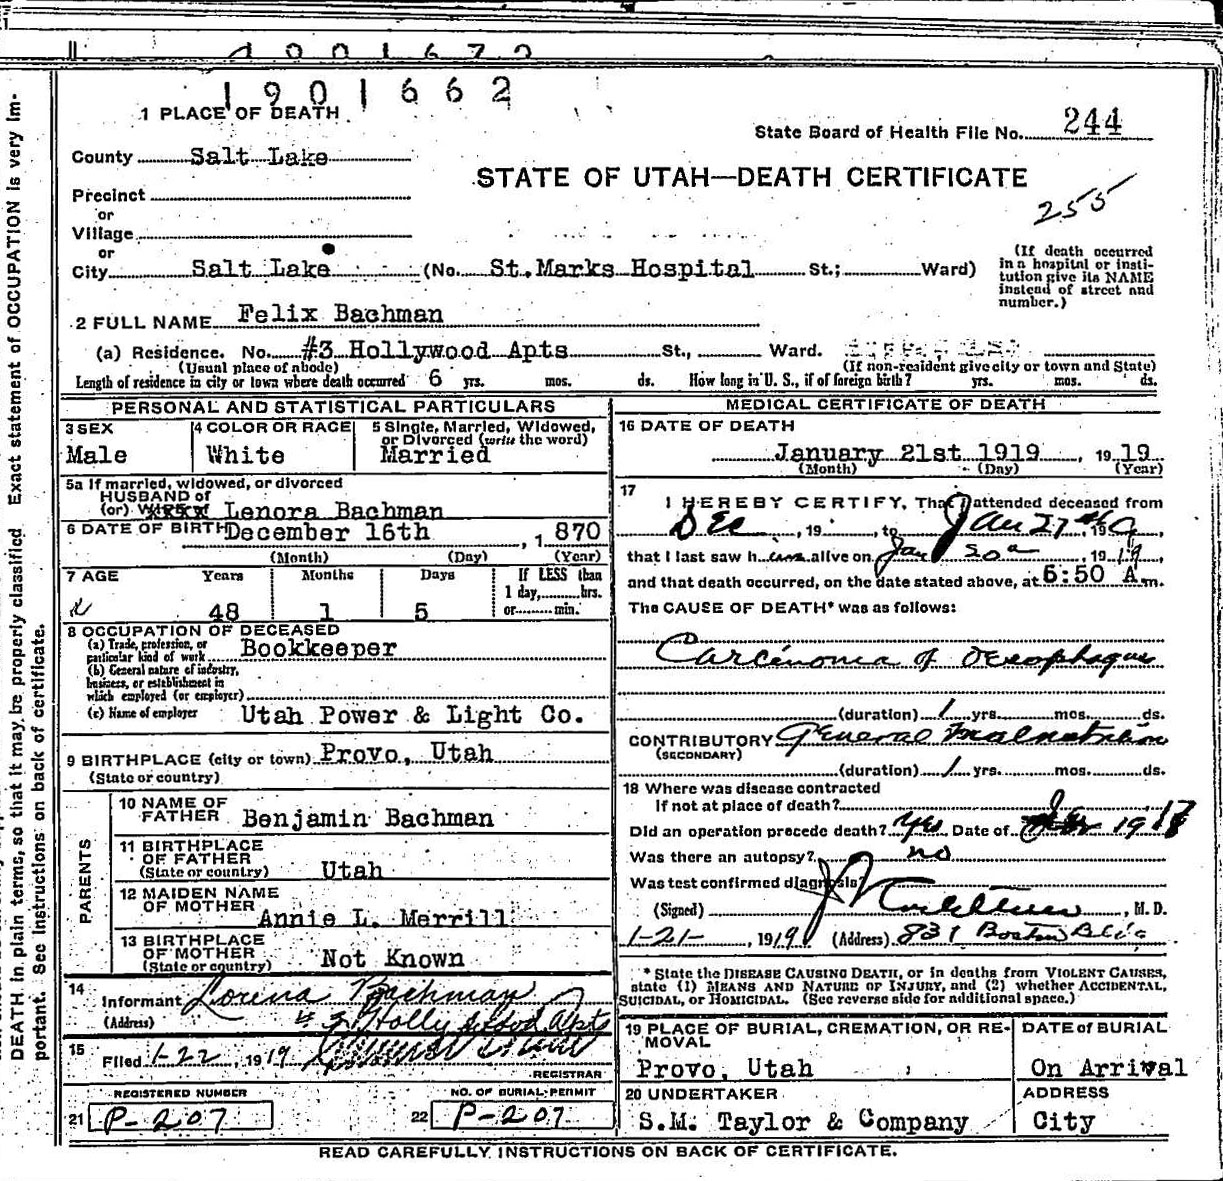 1901672
1901662
1 PLACE OF DEATH
State Board of Health File No. 244
County Salt Lake
STATE OF UTAH—DEATH CERTIFICATE
Precinct
or
255
Village
or
City Salt Lake (No. St. Marks Hospital St.; Ward)
(If death occurred in a hospital or insti-
tution give its NAME
instead of street and
number.)
2 FULL NAME Felix Bachman
(a) Residence. No. #3 Hollywood Apts St., Ward.
(Usual place of abode) (If non-resident give city or town and State)
Length of residence in city or town where death occurred 6 yrs. mos. ds. How long in U. S., if of foreign birth? yrs. mos. ds.
PERSONAL AND STATISTICAL PARTICULARS
3 SEX
Male
4 COLOR OR RACE
White
5 Single, Married, Widowed,
or Divorced (write the word)
Married
5a If married, widowed, or divorced
HUSBAND of
(or) Lenora Bachman
6 DATE OF BIRTH December 16th, 1870
(Month) (Day) (Year)
7 AGE Years Months Days
48 1 5
If LESS than
1 day, hrs.
or min.
8 OCCUPATION OF DECEASED
(a) Trade, profession, or
particular kind of work Bookkeeper
(b) General nature of industry,
business, or establishment in
which employed (or employer)
(c) Name of employer Utah Power & Light Co.
9 BIRTHPLACE (city or town) Provo, Utah
(State or country)
PARENTS
10 NAME OF
FATHER Benjamin Bachman
11 BIRTHPLACE
OF FATHER
(State or country) Utah
12 MAIDEN NAME
OF MOTHER Annie L. Merrill
13 BIRTHPLACE
OF MOTHER
(State or country) Not Known
14
Informant Lorena Bachman
(Address) # 3 Hollywood Apts
15
Filed 1-22, 1919
REGISTRAR
REGISTERED NUMBER
21 P-207
NO. OF BURIAL PERMIT
22 P-207
MEDICAL CERTIFICATE OF DEATH
16 DATE OF DEATH
January 21st 1919, 1919
(Month) (Day) (Year)
17
I HEREBY CERTIFY, That I attended deceased from
Dec, 19 , to Jan 21st 19,
that I last saw him alive on Jan 20th 1919,
and that death occurred, on the date stated above, at 6:50 A m.
The CAUSE OF DEATH* was as follows:
Carcinoma of Oesophagus
(duration) 1 yrs. mos. ds.
CONTRIBUTORY General Malnutrition
(SECONDARY)
(duration) 1 yrs. mos. ds.
18 Where was disease contracted
If not at place of death?
Did an operation precede death? yes Date of 191
Was there an autopsy? no
Was test confirmed diagnosis?
(Signed) , M. D.
1-21-, 1919 (Address) 831 Boston Bldg
* State the DISEASE CAUSING DEATH, or in deaths from VIOLENT CAUSES,
state (1) MEANS AND NATURE OF INJURY, and (2) whether ACCIDENTAL,
SUICIDAL, or HOMICIDAL. (See reverse side for additional space.)
19 PLACE OF BURIAL, CREMATION, OR RE-
MOVAL
Provo, Utah
DATE of BURIAL
On Arrival
20 UNDERTAKER
S.M. Taylor & Company
ADDRESS
City
READ CAREFULLY INSTRUCTIONS ON BACK OF CERTIFICATE.
DEATH in plain terms, so that it may be properly classified Exact statement of OCCUPATION is very im-
portant. See instructions on back of certificate.